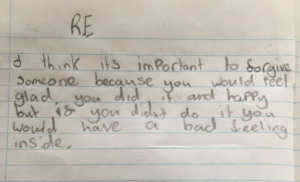 RE
I think its important to forgive
someone because you would feel
glad you did it and happy
but if you didn't do it you
would have a bad feeling
inside.